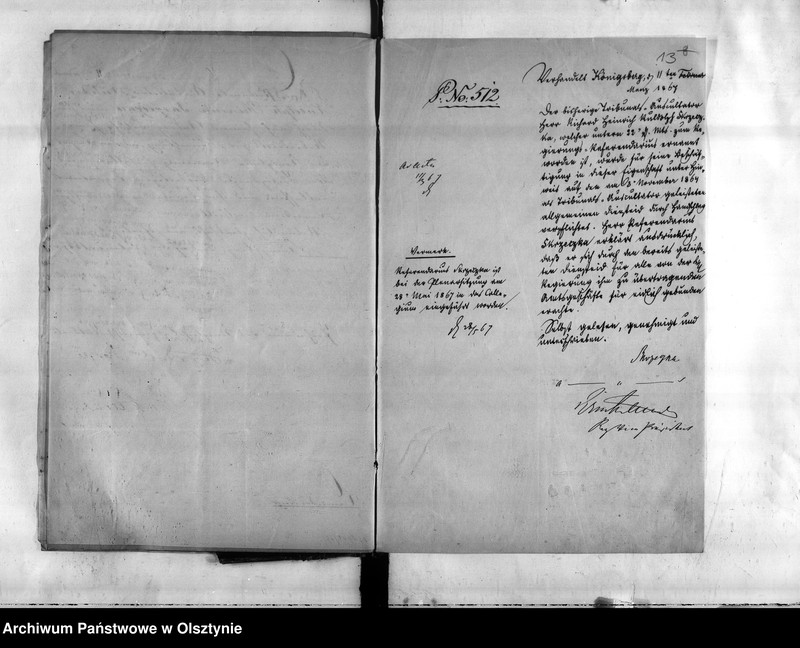 13
P. No. 512.
Verhandelt Königsberg, d. 11 ten
März 1867
Der bisherige Tribunals-Auscultator
Herr Richard Heinrich Rudolph Skrzecz-
ka, welcher unterm 22t v. Mts. zum Re-
gierungs-Referendarius ernannt
worden ist, wurde für seine Beschäf-
tigung in dieser Eigenschaft unter Hin-
weis auf den am November 1864
als Tribunals-Auscultator geleisteten
allgemeinen Diensteid durch Handschlag
verpflichtet. Herr Referendarius
Skrzeczka erklärt ausdrücklich,
daß er sich durch den bereits geleiste-
ten Diensteid für alle von der Kgl.
Regierung ihm zu übertragenden
Amtsgeschäfte für eidlich gebunden
erachte.
Selbst gelesen, genehmigt und
unterschrieben.
Skrzeczka
a. u. s.
Ad Acta
67
Vermerk.
Referendarius Skrzeczka ist
bei der Plenarsitzung am
28t Mai 1867 in das Colle-
gium eingeführt worden.
67
Archiwum Państwowe w Olsztynie